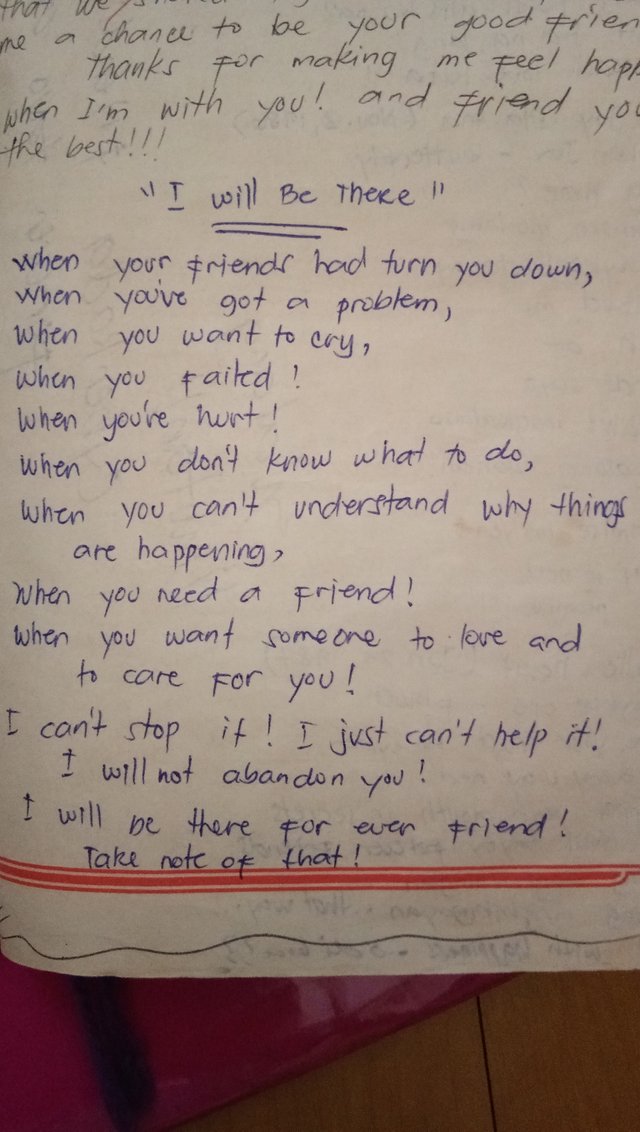 that we
me a chance to be your good frien
thanks for making me feel hap
when I'm with you! and friend you
the best!!!
"I will Be There"
when your friends had turn you down,
when you've got a problem,
when you want to cry,
when you failed!
when you're hurt!
when you don't know what to do,
when you can't understand why things
are happening,
when you need a friend!
when you want someone to love and
to care for you!
I can't stop it! I just can't help it!
I will not abandon you!
I will be there for ever friend!
Take note of that!